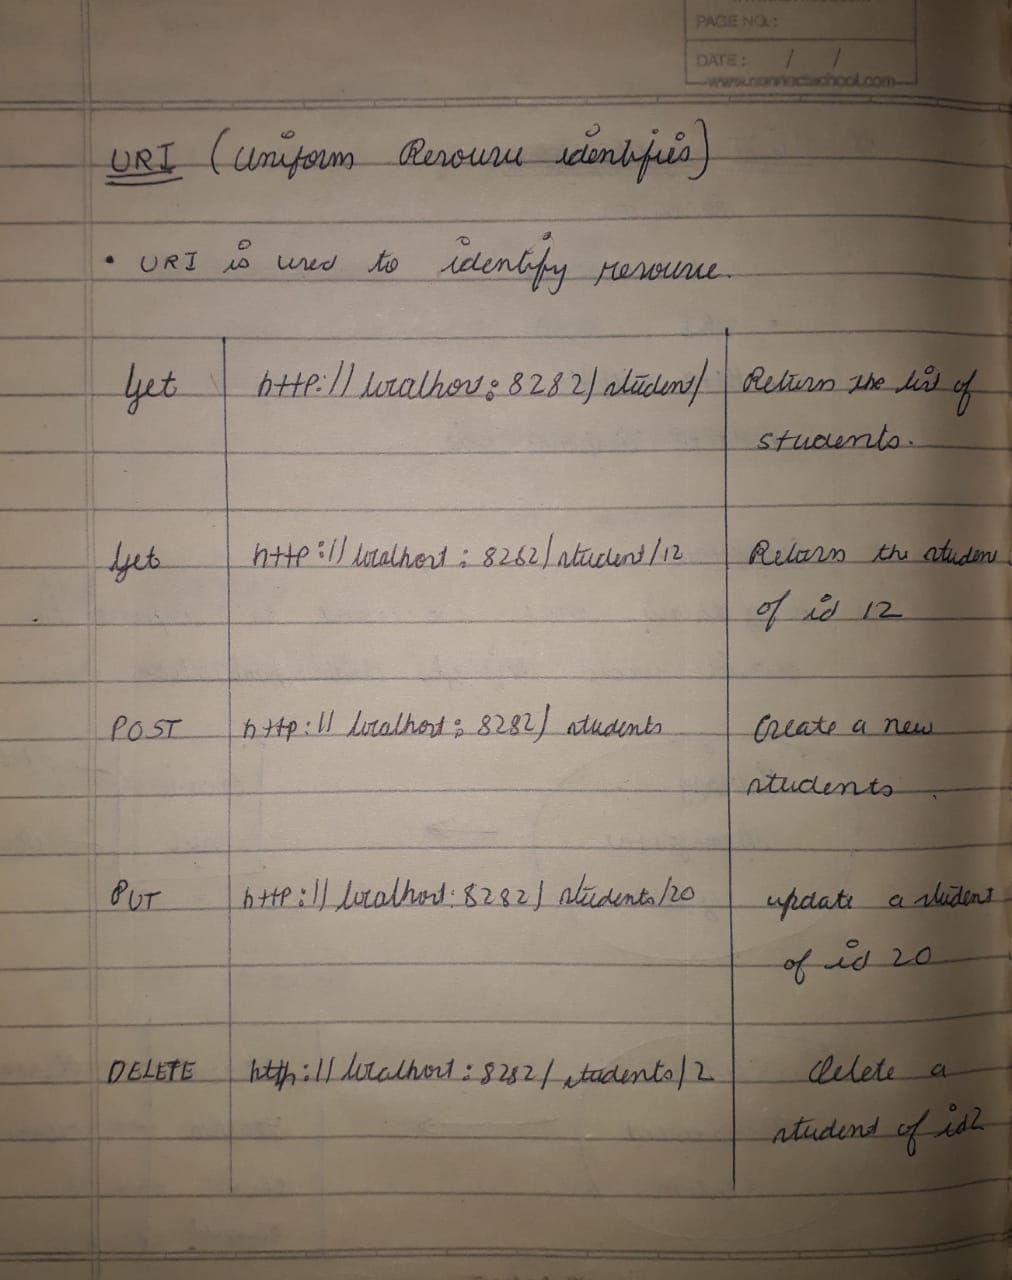 PAGE NO.:
DATE: / /
URI (Uniform Resource identifies)
• URI is used to identify resource.
Get http://localhos:8282/student/ Return the list of
students.
Get http://localhost:8282/student/12 Return the student
of id 12
POST http://localhost:8282/students Create a new
students
PUT http://localhost:8282/students/20 update a student
of id 20
DELETE http://localhost:8282/students/2 delete a
student of id2